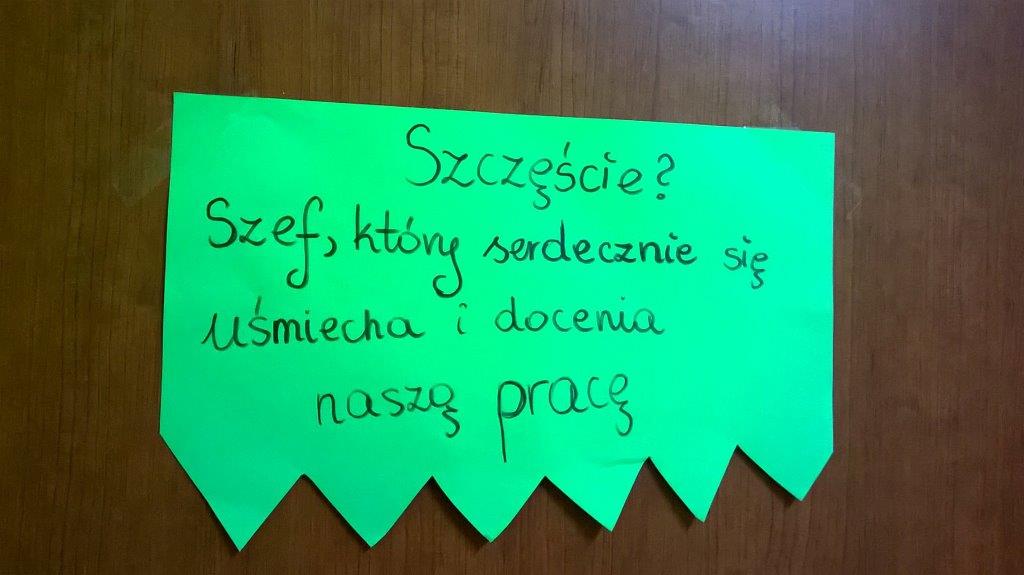 Szczęście?
Szef, który serdecznie się
uśmiecha i docenia
naszą pracę